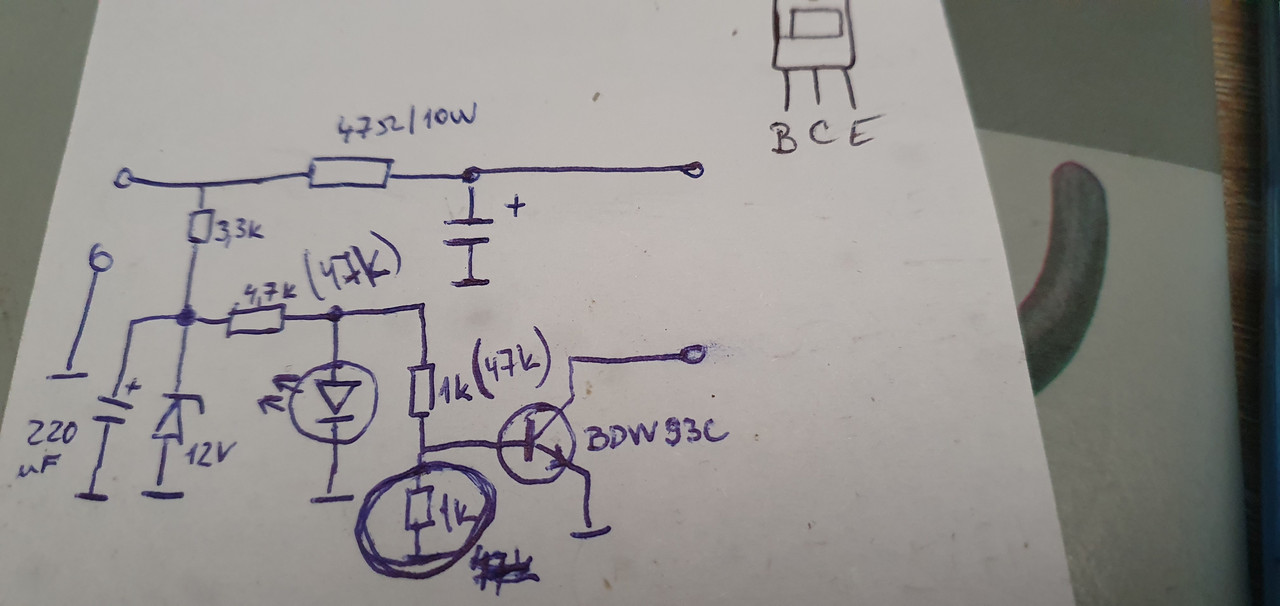 47Ω/10W
B C E
+
3,3k
4,7k (47k)
1k (47k)
+
220
uF
12V
BDW93C
1k